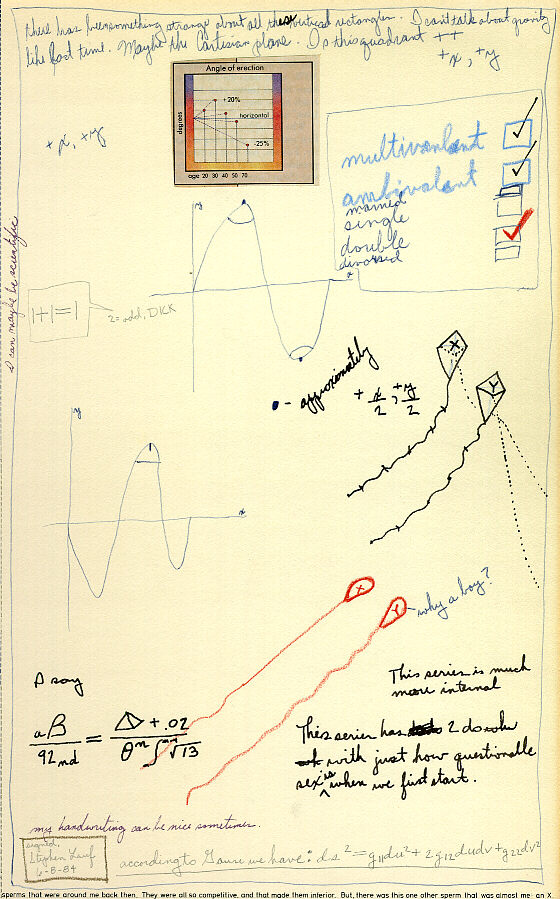 there has been something strange about all these vertical rectangles. I can't talk about gravity
like last time. Maybe the Cartesian plane. Is this quadrant ++
+x, +y
Angle of erection
+20%
horizontal
-25%
degrees
age 20 30 40 50 70
+x, +y
multivalent
ambivalent
married
single
double
divorced
I can maybe be scientific
y
x
1+1=1
2=odd, DICK
• - approximately
+ x/2, +y/2
X
Y
y
x
X
Y
why a boy?
I say
aB/92nd = △ + .02
This series is much
more internal
This series has 2 do
with just how questionable
sex is when we first start.
my handwriting can be nice sometimes.
signed,
Stephen Lauf
6-8-84
according to Gauss we have: ds² = g₁₁du² + 2g₁₂dudv + g₂₂dv²
sperms that were around me back then. They were all so competitive, and that made them inferior. But, there was this one other sperm that was almost me- an X